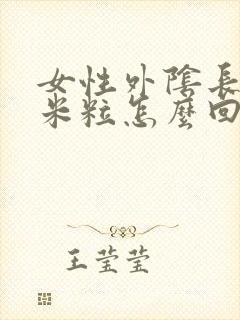 女性外陰長
米粒怎麼回
王莹莹